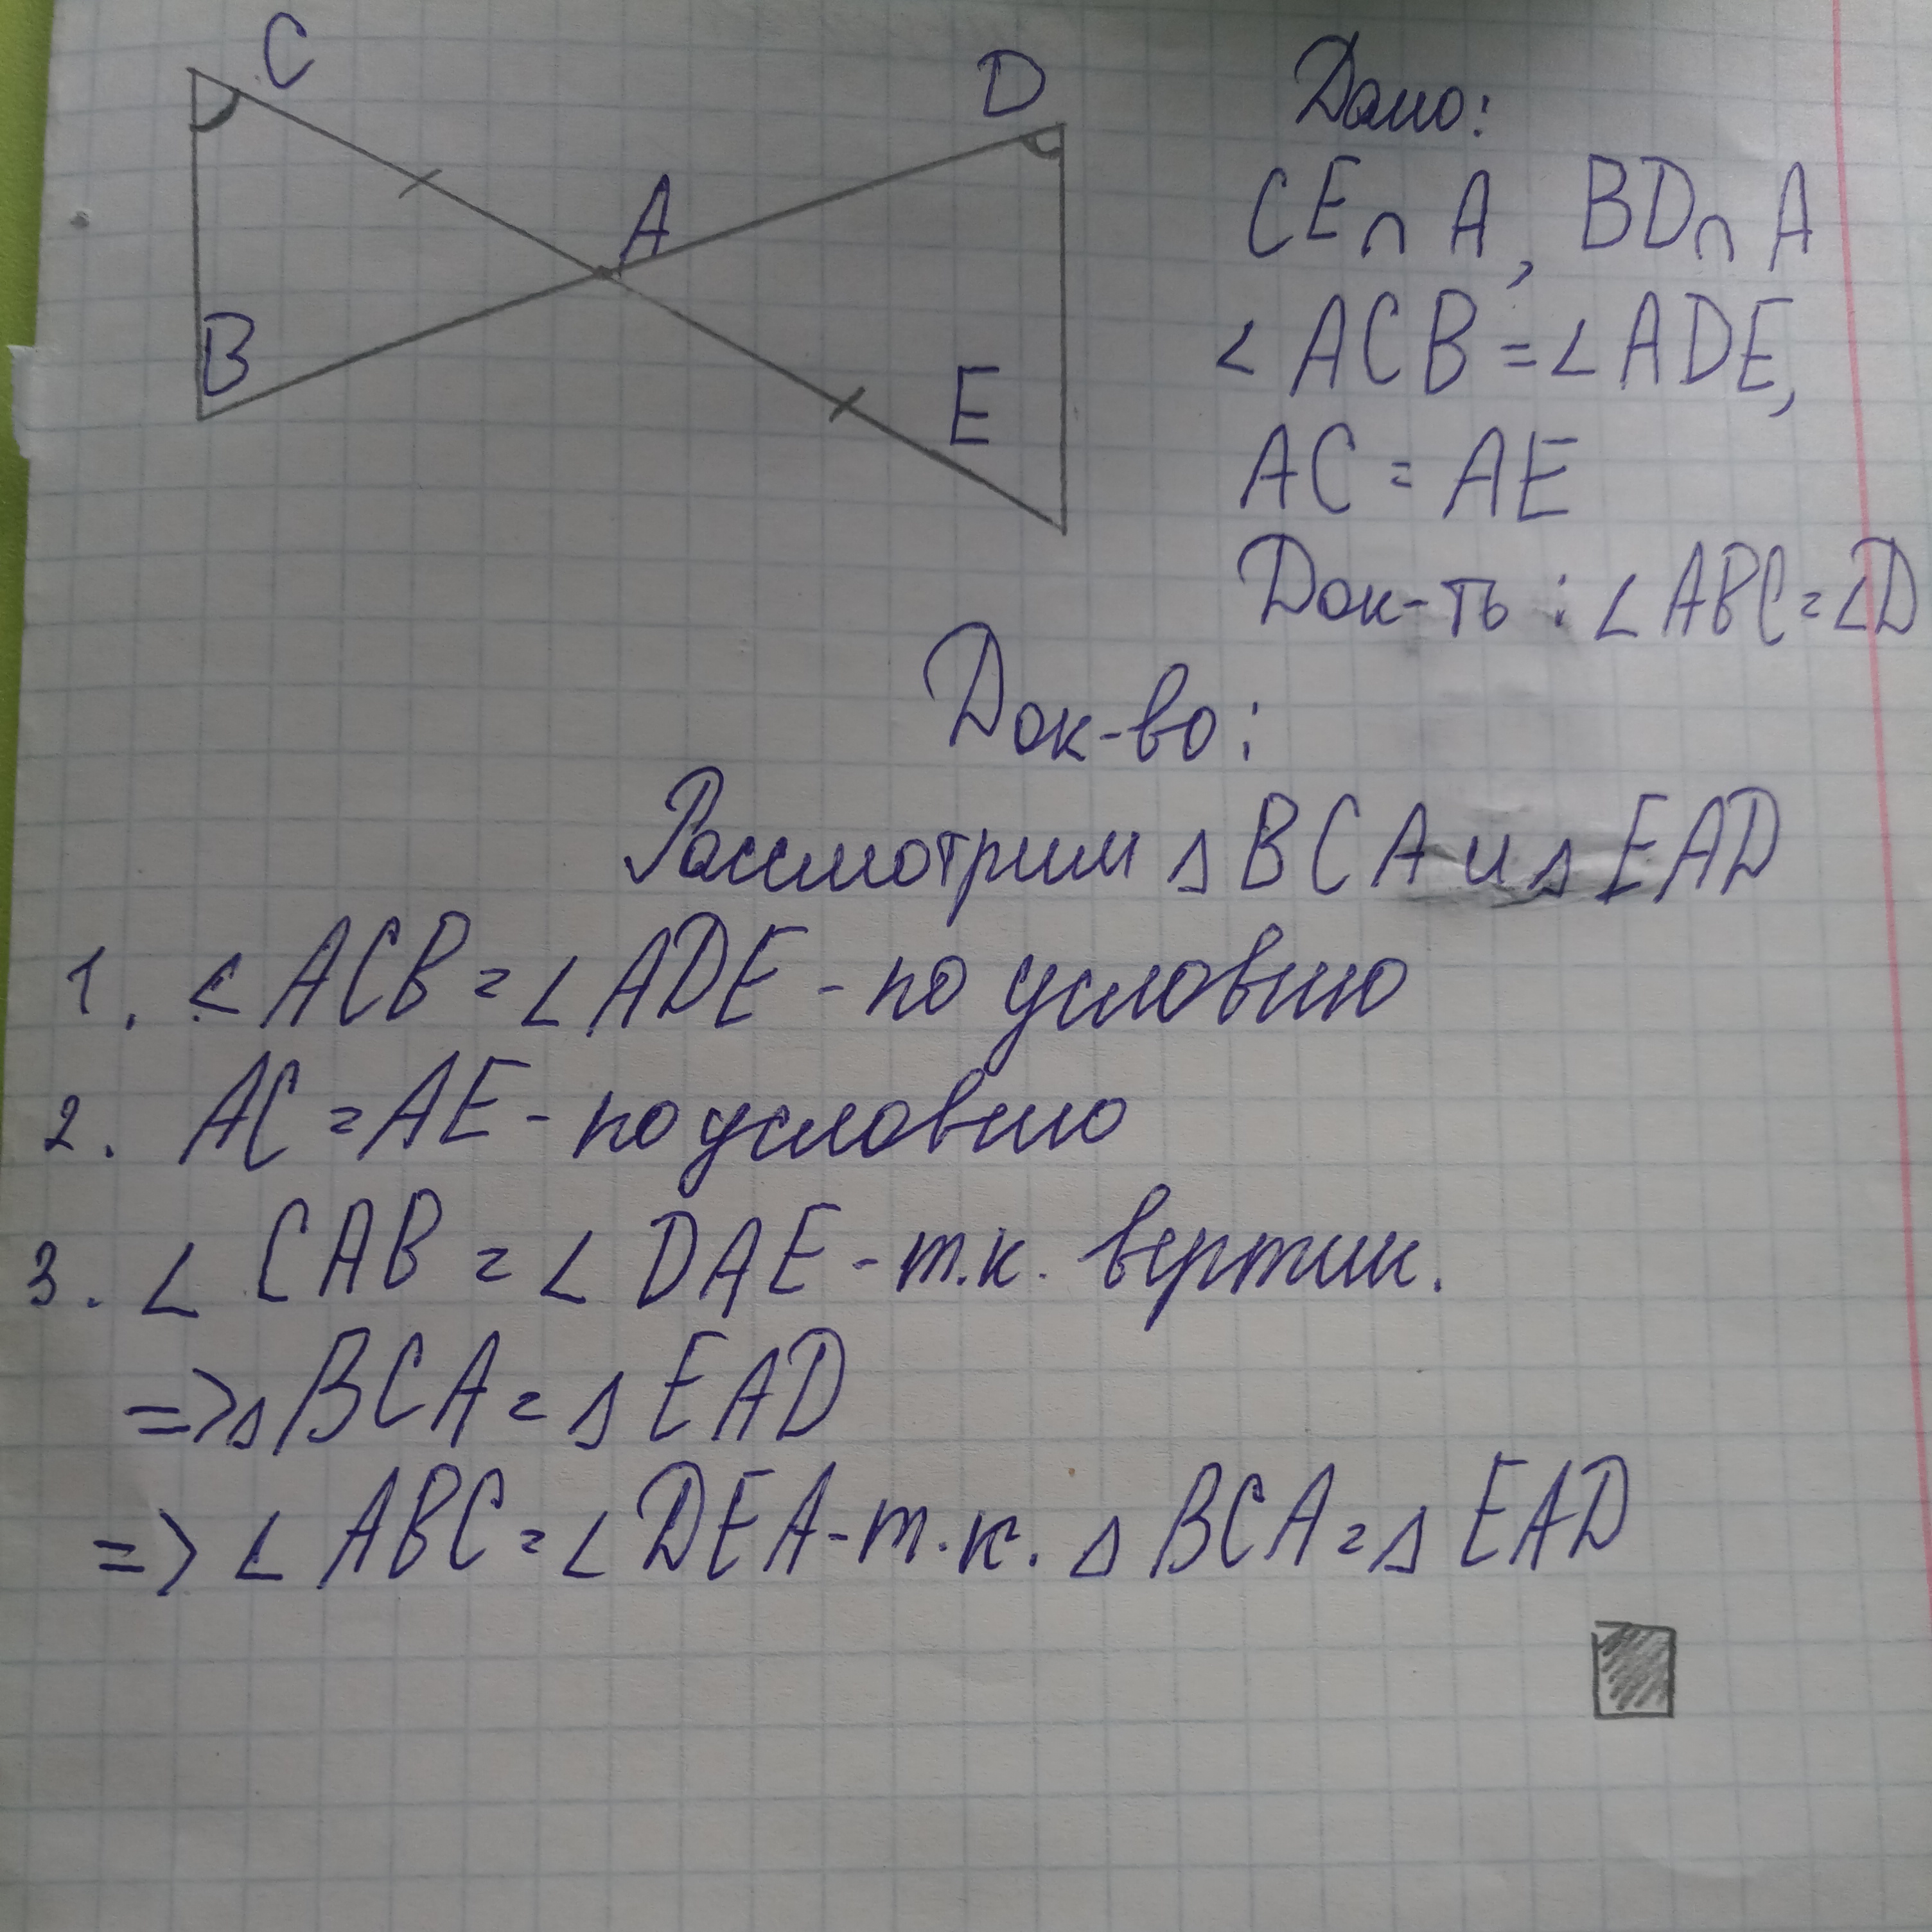 C
D
A
B
E
Дано:
CE∩A, BD∩A
∠ACB=∠ADE,
AC=AE
Док-ть: ∠ABC=∠D
Док-во:
Рассмотрим △BCA и △EAD
1. ∠ACB=∠ADE - по условию
2. AC=AE - по условию
3. ∠CAB=∠DAE - т.к. вертик.
=> △BCA=△EAD
=> ∠ABC=∠DEA - т.к. △BCA=△EAD